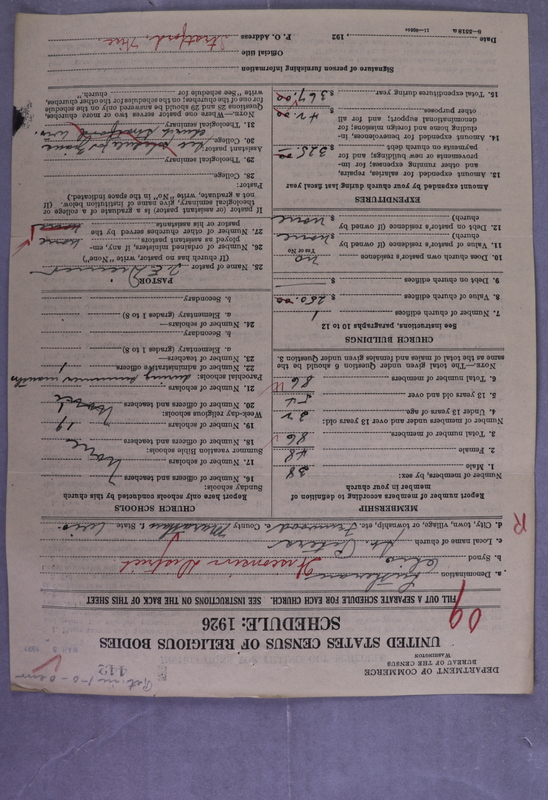 DEPARTMENT OF COMMERCE
BUREAU OF THE CENSUS
WASHINGTON
UNITED STATES CENSUS OF RELIGIOUS BODIES
SCHEDULE: 1926
FILL OUT A SEPARATE SCHEDULE FOR EACH CHURCH. SEE INSTRUCTIONS ON THE BACK OF THIS SHEET
09
a. Denomination Lutheran
b. Synod Ohio Wisconsin District
c. Local name of church St. Peters
d. City, town, village, or township, etc. County Marathon, State Wis.
R
MEMBERSHIP
Report number of members according to definition of member in your church
Number of members, by sex:
1. Male 38
2. Female 48
3. Total number of members. 86
Number of members under and over 13 years old:
4. Under 13 years of age 32
5. 13 years old and over 54
6. Total number of members 86
NOTE.—The total given under Question 6 should be the same as the total of males and females given under Question 3.
CHURCH BUILDINGS
See instructions, paragraphs 10 to 12
7. Number of church edifices 1
8. Value of church edifices $ 250.00
9. Debt on church edifices $
10. Does church own pastor's residence no
Yes or No
11. Value of pastor's residence (if owned by church) $ none
12. Debt on pastor's residence (if owned by church) $ none
EXPENDITURES
Amount expended by your church during last fiscal year
13. Amount expended for salaries, repairs, and other running expenses; for improvements or new building; and for payments on church debt $ 325.00
14. Amount expended for benevolences, including home and foreign missions; for denominational support; and for all other purposes $ 42.00
15. Total expenditures during year $ 367.00
CHURCH SCHOOLS
Report here only schools conducted by this church
Sunday schools:
16. Number of officers and teachers
17. Number of scholars
None
Summer vacation Bible schools:
18. Number of officers and teachers 1
19. Number of scholars 19
Week-day religious schools:
20. Number of officers and teachers
21. Number of scholars
during summer months
Parochial schools:
22. Number of administrative officers
23. Number of teachers—
a. Elementary (grades 1 to 8)
b. Secondary
24. Number of scholars—
a. Elementary (grades 1 to 8)
b. Secondary
PASTOR
25. Name of pastor
(If church has no pastor, write "None")
26. Number of ordained ministers, if any, employed as assistant pastors none
27. Number of other churches served by the pastor or his assistants
If pastor (or assistant pastor) is a graduate of a college or theological seminary, give name of institution below. (If not a graduate, write "No" in the space indicated.)
Pastor:
28. College
29. Theological seminary
Assistant pastor: See schedule for Zion's
30. College church Stratford Wis.
31. Theological seminary
NOTE.—Where one pastor serves two or more churches, Questions 28 and 29 should be answered only on the schedule for one of the churches; on the schedules for the other churches, write "See schedule for church."
Signature of person furnishing information
Official title
P. O. Address Stratford, Wis
Date , 192
11—9260a
8—5518a